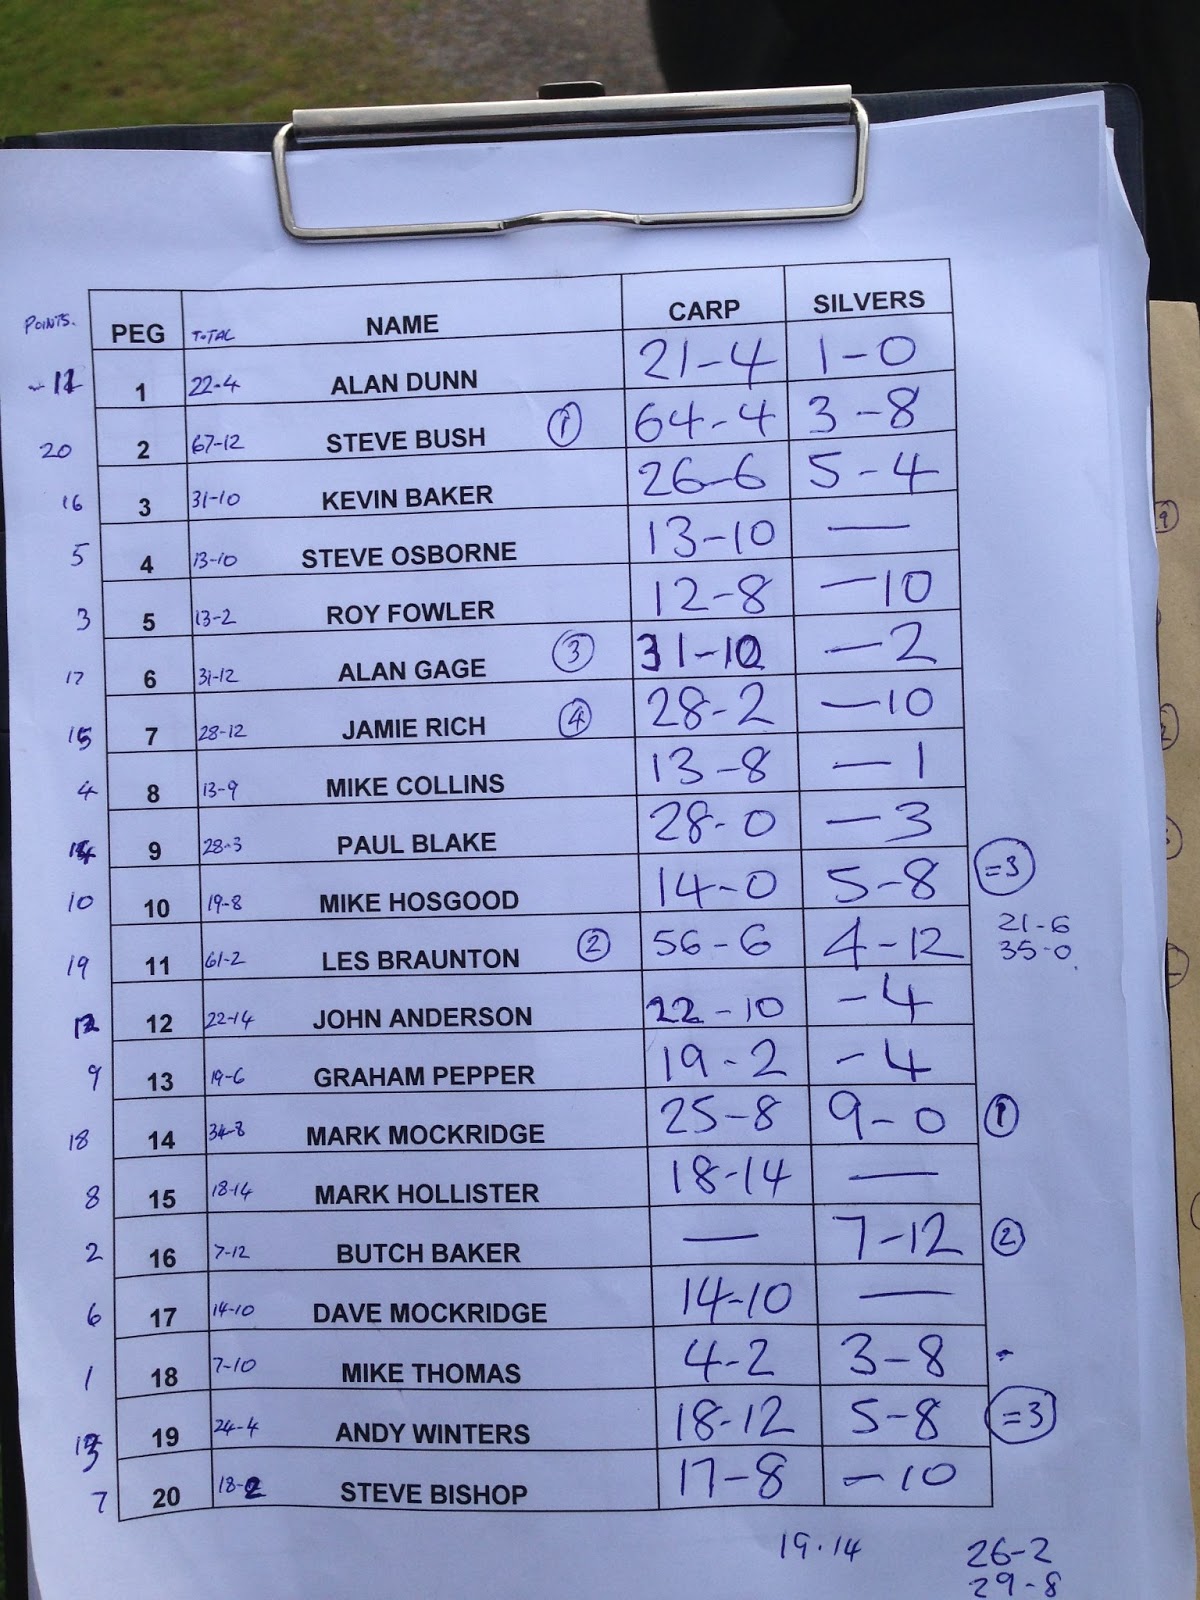 POINTS. PEG TOTAL NAME CARP SILVERS
11 1 22-4 ALAN DUNN 21-4 1-0
20 2 67-12 STEVE BUSH 1 64-4 3-8
16 3 31-10 KEVIN BAKER 26-6 5-4
5 4 13-10 STEVE OSBORNE 13-10 —
3 5 13-2 ROY FOWLER 12-8 —10
17 6 31-12 ALAN GAGE 3 31-10 —2
15 7 28-12 JAMIE RICH 4 28-2 —10
4 8 13-9 MIKE COLLINS 13-8 —1
14 9 28-3 PAUL BLAKE 28-0 —3
10 10 19-8 MIKE HOSGOOD 14-0 5-8 =3
21-6
35-0
19 11 61-2 LES BRAUNTON 2 56-6 4-12
12 12 22-14 JOHN ANDERSON 22-10 -4
9 13 19-6 GRAHAM PEPPER 19-2 -4
18 14 34-8 MARK MOCKRIDGE 25-8 9-0 1
8 15 18-14 MARK HOLLISTER 18-14 —
2 16 7-12 BUTCH BAKER — 7-12 2
6 17 14-10 DAVE MOCKRIDGE 14-10 —
1 18 7-10 MIKE THOMAS 4-2 3-8
13 19 24-4 ANDY WINTERS 18-12 5-8 =3
7 20 18-2 STEVE BISHOP 17-8 -10
19.14 26-2
29-8